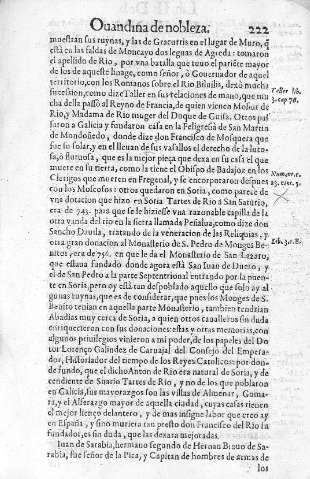 Ouandina de nobleza. 222
muestran sus ruynas, y las de Gracurris en el lugar de Muro, q̃
està en las faldas de Moncayo dos leguas de Agreda: tomaron
el apellido de Rio, por vna batalla que tuuo el pariẽte mayor
de los de aqueste linage, como señor, ò Gouernador de aquel
territorio, con los Romanos sobre el Rio Bilbilis, dexò mucha
sucession, como dize Toller en sus relaciones de mano, que mu
cha della passò al Reyno de Francia, de quien vienen Mosiur de
Rio, y Madama de Rio muger del Duque de Guisa. Otros pas
saron a Galicia y fundaron casa en la Feligresia de San Martin
de Mondoñedo, donde dize don Francisco de Mosquera que
fue su solar, y en el lleuan de sus vassallos el derecho de la luto-
sa, ò fluctuosa, que es la mejor pieça que dexa en su casa el que
muere en su tierra, como la tiene el Obispo de Badajoz en los
Clerigos que mueren en Fregenal, y se encorporaron despues
con los Moscosos: otros quedaron en Soria, como parece de
vna dotacion que hizo en Soria Tartes de Rio à San Saturio,
era de 943. para que se le hiziesse vna razonable capilla de la
otra vanda del rio en la sierra llamada Peñalua, como dize don
Sancho Dauila, tratando de la veneracion de las Reliquias, y
otra gran donacion al Monasterio de S. Pedro de Monges Be-
nitos, era de 956. en que le da el Monasterio de San Lazaro,
que estaua fundado donde agora està San Iuan de Duero, y
el de San Pedro a la parte Septentrional entrando por la puen-
te en Soria, pero oy està tan despoblado aquello que solo ay al
gunas ruynas, que es de considerar, que pues los Monges de S.
Benito tenian en aquella parte Monasterio, tambien tendrian
Abadias muy cerca de Soria, a quien otros caualleros sin duda
enriquecieron con sus donaciones: estas y otras memorias, con
algunos priuilegios vinieron a mi poder, de los papeles del Do
ctor Lorenço Galindez de Caruajal del Consejo del Empera-
dor, Historiador del tiempo de los Reyes Catolicos: por don-
de fundo, que el dicho Anton de Rio era natural de Soria, y de
cendiente de Suario Tartes de Rio, y no de los que poblaron
en Galicia, sus mayorazgos son las villas de Almenar, Goma-
ra, y el Alferazgo mayor de aquella ciudad, cuyas casas tienen
el mejor lienço delantero, y de mas insigne labor que creo ay
en España, y sino muriera tan presto don Francisco del Rio su
fundador, es sin duda, que las dexara mejoradas.
Iuan de Sarabia, hermano segundo de Hernan Brauo de Sa-
rabia, fue señor de la Pica, y Capitan de hombres de armas de
los
Toller lib.
3. cap. 78.
23. conc. 3.
Lib. 3. c. 8.